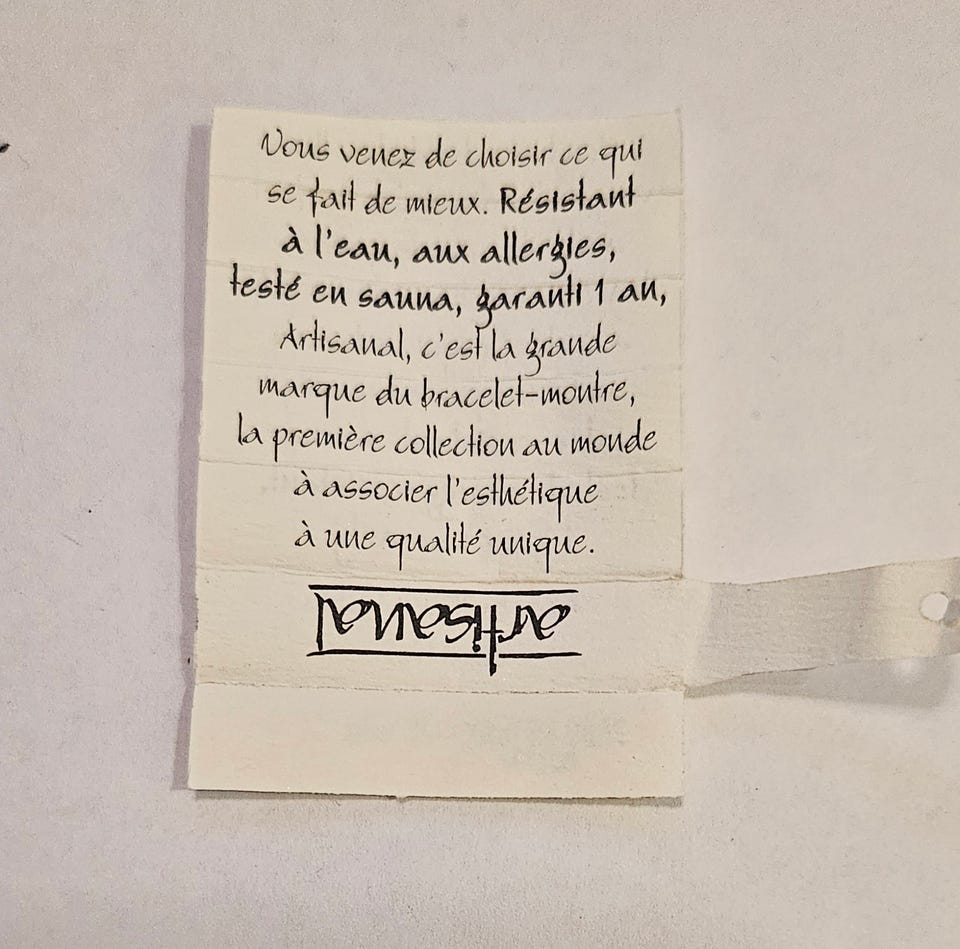 Vous venez de choisir ce qui
se fait de mieux. Résistant
à l'eau, aux allergies,
testé en sauna, garanti 1 an,
Artisanal, c'est la grande
marque du bracelet-montre,
la première collection au monde
à associer l'esthétique
à une qualité unique.
artisanal